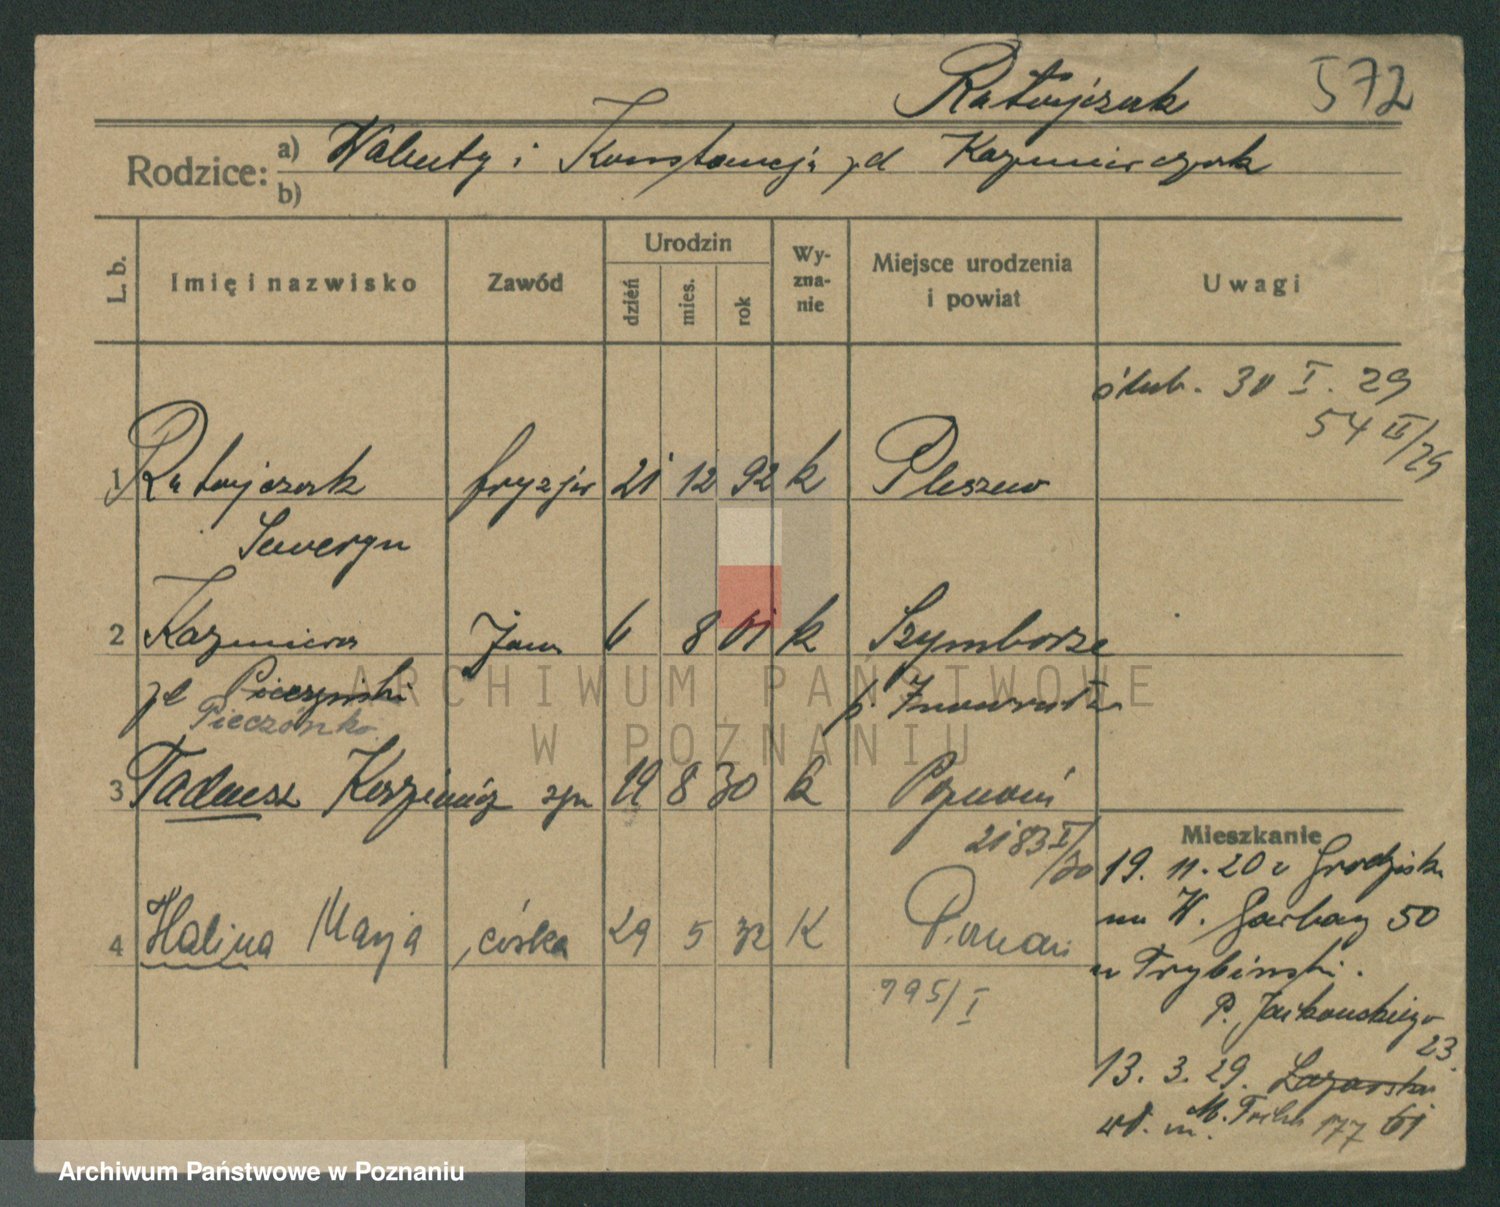 Ratajczak 572
Rodzice: a) Walenty i Konstancja zd Kazmierczak
b)
L. b. Imię i nazwisko Zawód Urodzin dzień mies. rok Wy-zna-nie Miejsce urodzenia i powiat Uwagi
ślub. 30 I. 29
54 II/29
1 Ratajczak fryzjer 21 12 92 k Pleszew
Seweryn
2 Kazimiera żona 6 8 01 k Szymborze
zd Pieczynski p.
Pieczonka
3 Tadeusz Kazimierz syn 19 8 30 k Poznań
2183 I/30
Mieszkanie
19. 11. 20 z Grodziska
na W. Garbary 50
4 Halina Marja córka 29 5 32 K Poznań
u Trybinski.
795/I
P. Jackowskiego
23.
13. 3. 29. Łazarska
M. Focha 177 61
ARCHIWUM PAŃSTWOWE
W POZNANIU
Archiwum Państwowe w Poznaniu